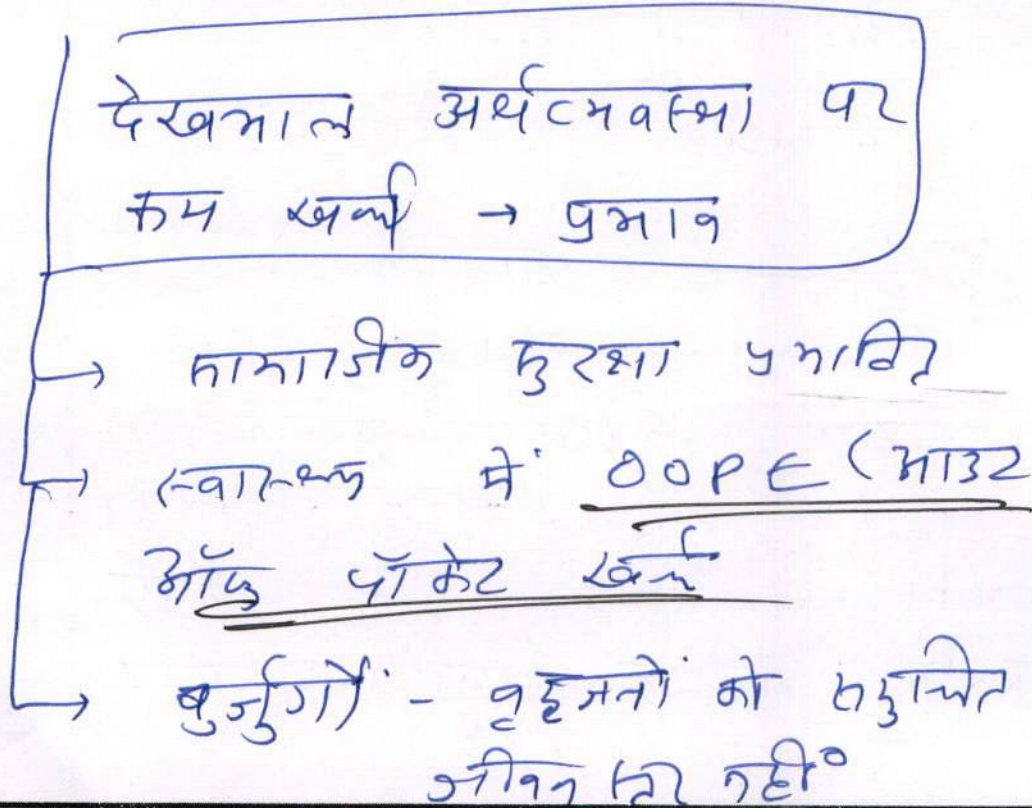 देखभाल अर्थव्यवस्था पर
कम खर्च → प्रभाव
→ सामाजीक सुरक्षा प्रभावित
→ स्वास्थ्य में OOPE (आउट
ऑफ पॉकेट खर्च
→ बुर्जुगों - वृद्धजनों को समुचित
जीवन स्तर नहीं